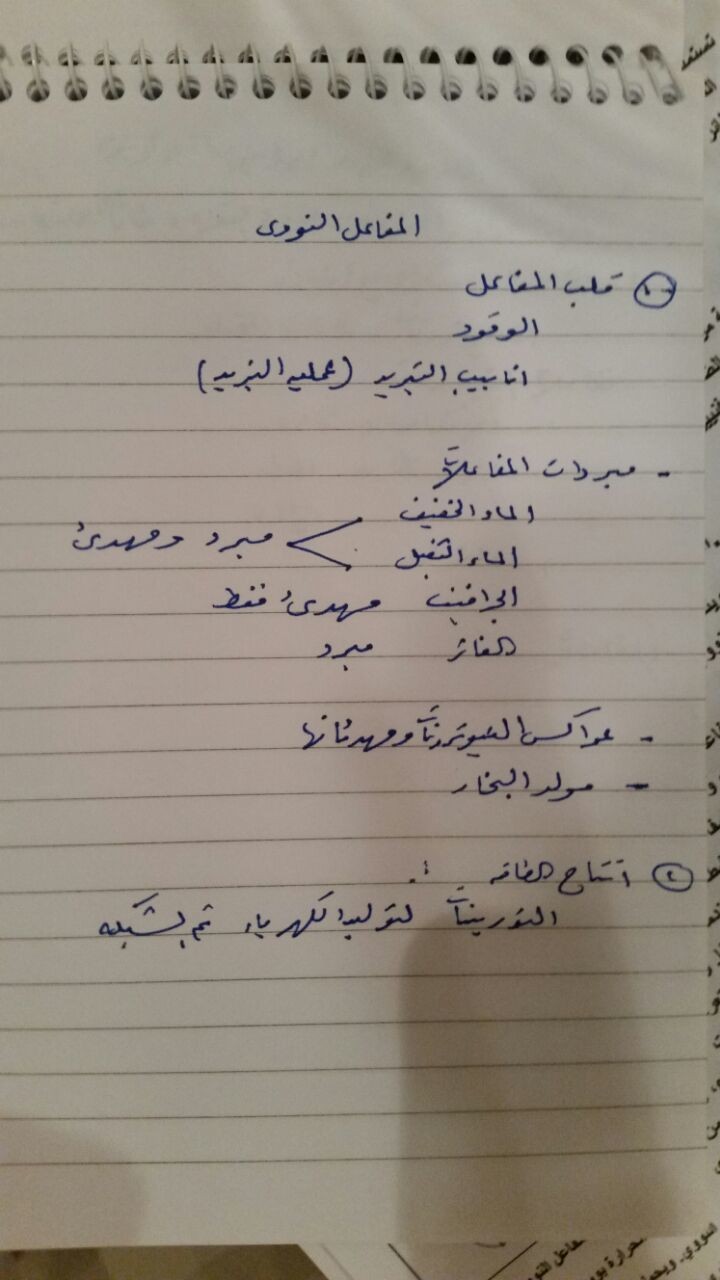 المفاعل النووى
١ - قلب المفاعل
الوقود
انابيب التبريد (عمليه التبريد)
- مبردات المفاعلات
الماء الخفيف
الماء الثقيل > مبرد ومهدئ
الجرافيت مهدئ فقط
الغاز مبرد
- عواكس النيوترونات ومهدئاتها
- مولد البخار
٢ انتاج الطاقه :.
التوربينات لتوليد الكهرباء ثم الشبكه